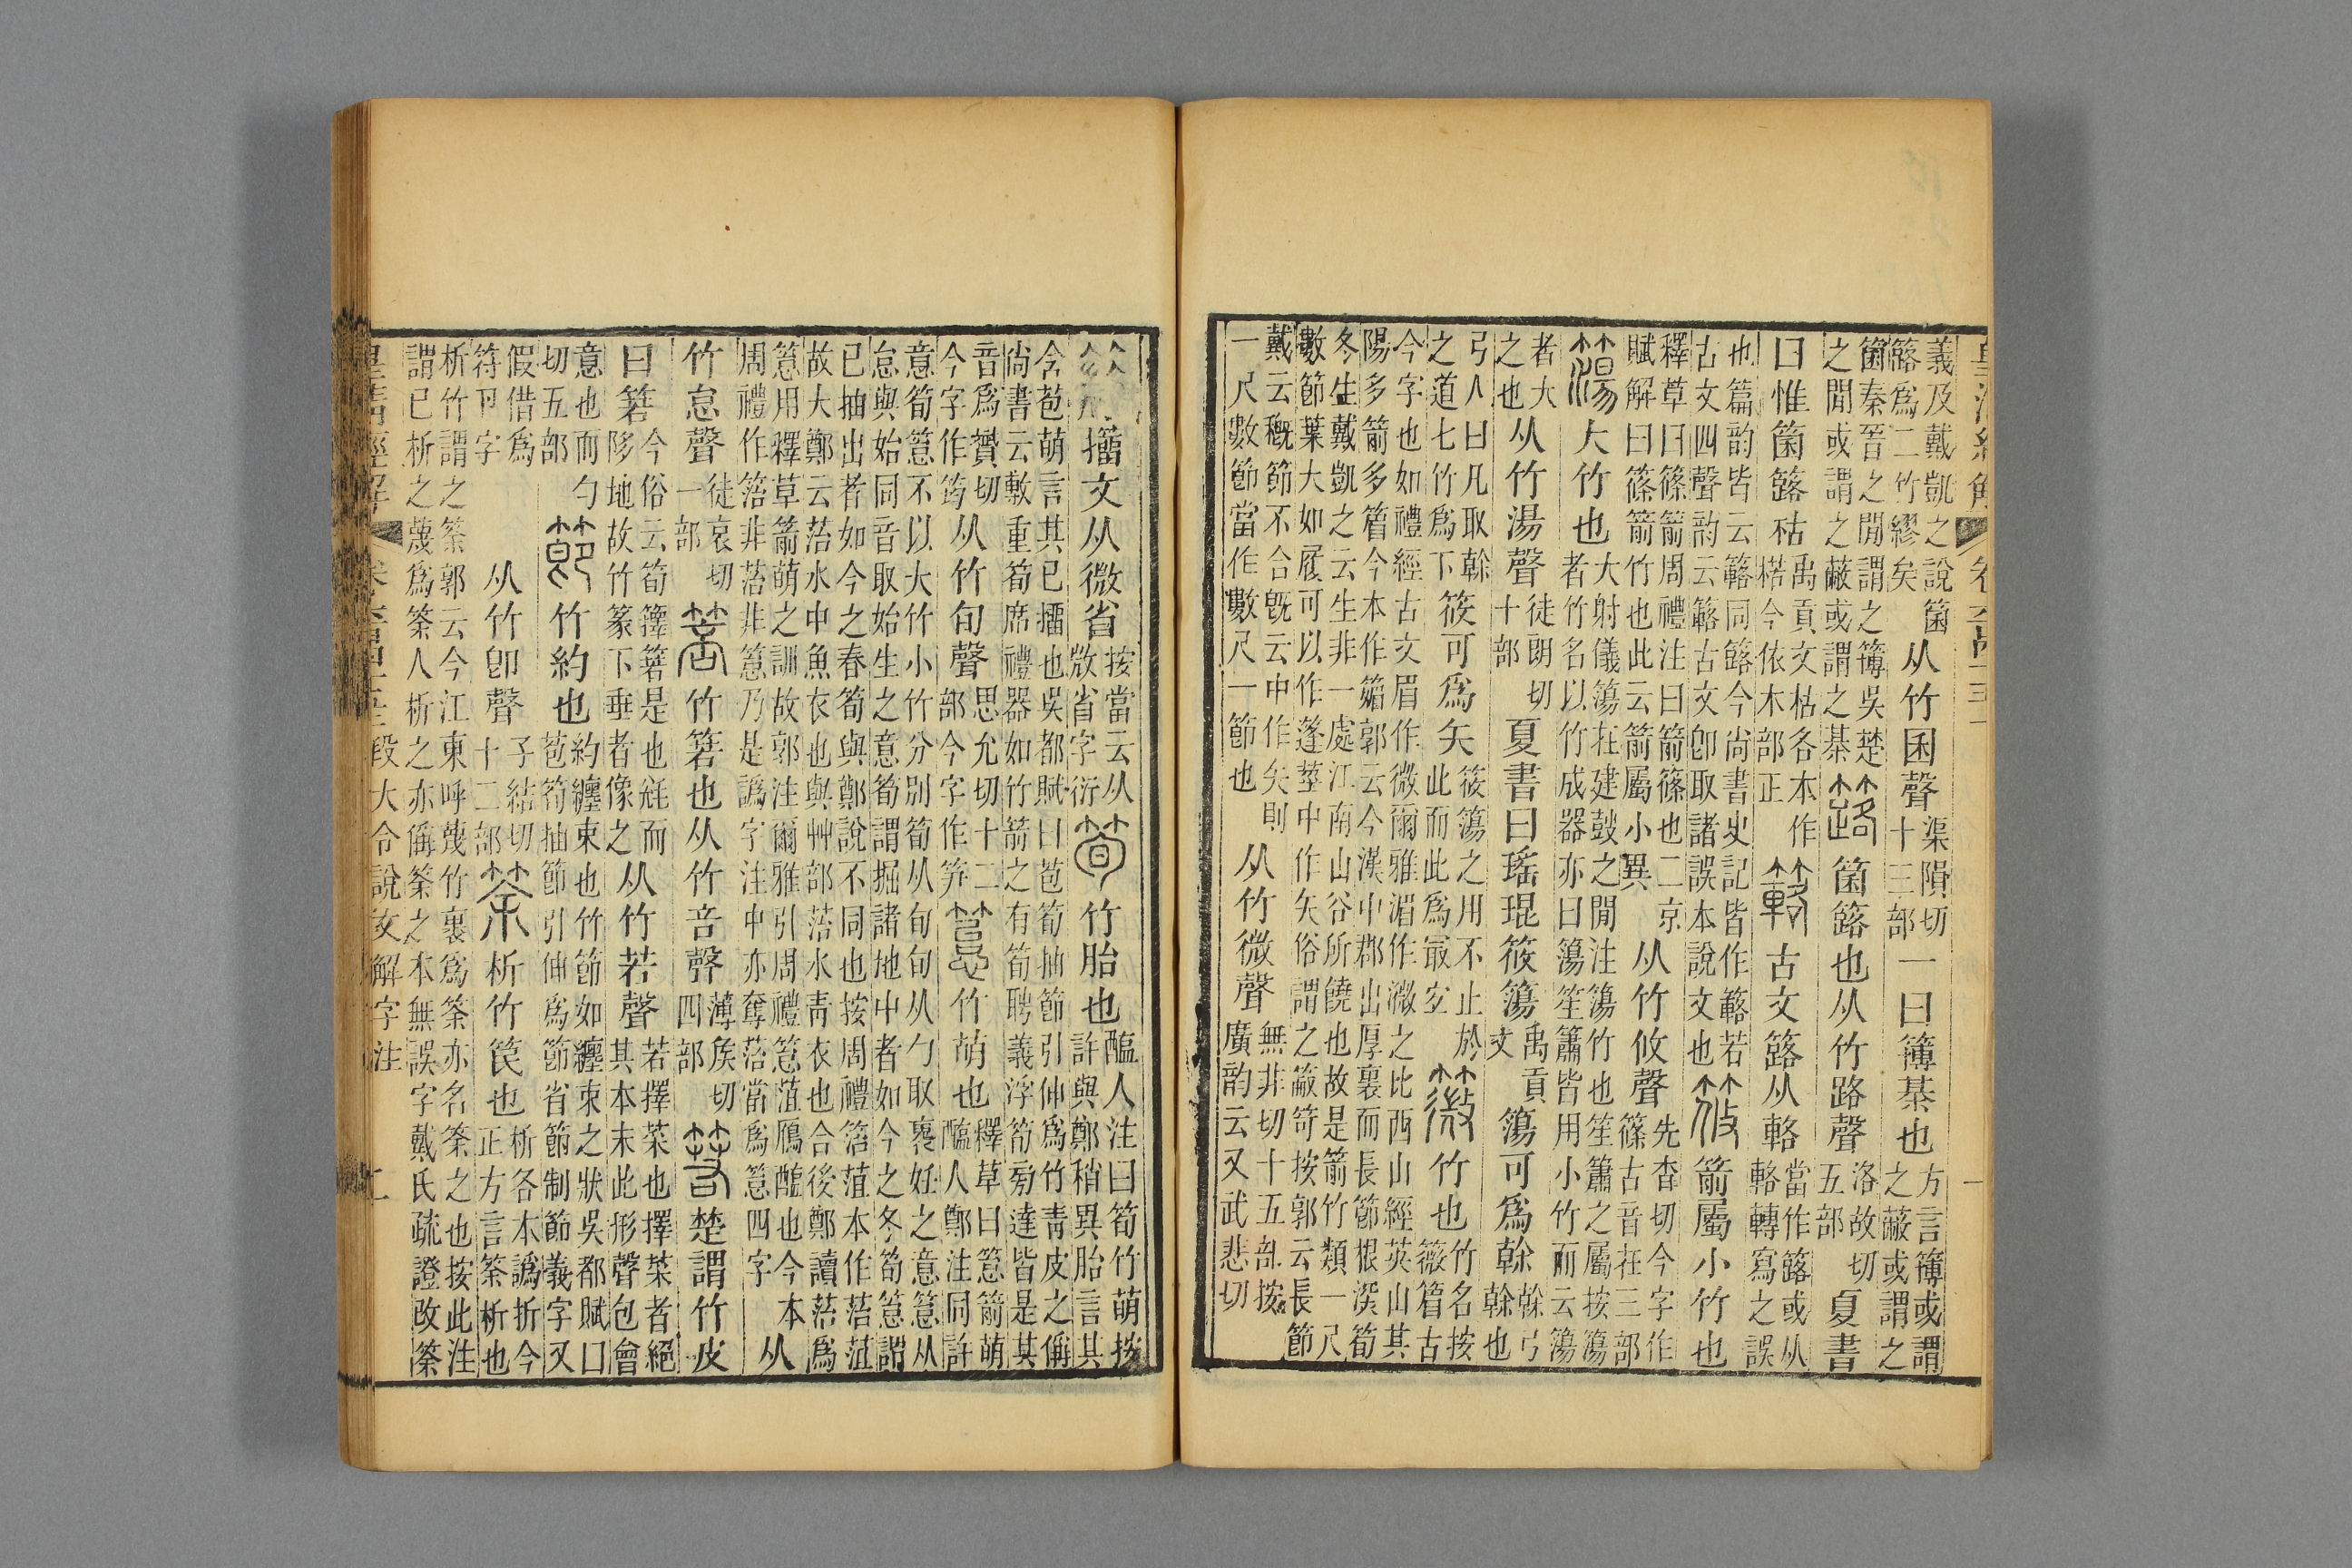 皇清經解 卷六百四十五 一
義及戴凱之說箘簬爲二竹繆矣从竹囷聲渠隕切十三部一曰簙棊也方言簙或謂之蔽或謂之
箘秦晉之閒謂之簙吳楚之閒或謂之蔽或謂之棊簬箘簬也从竹路聲洛故切五部夏書
曰惟箘簬枯禹貢文枯各本作楛今依木部正簵古文簬从輅當作簬或从輅轉寫之誤
也篇韵皆云簵同簬今尚書史記皆作簵若古文四聲韵云簵古文卽取諸誤本說文也筱箭屬小竹也
釋草曰篠箭周禮注曰箭篠也二京賦解曰篠箭竹也此云箭屬小異从竹攸聲先杳切今字作篠古音在三部
簜大竹也大射儀簜在建鼓之閒注簜竹也笙簫之屬按簜者竹名以竹成器亦曰簜笙簫皆用小竹而云簜
者大之也从竹湯聲徒朗切十部夏書曰瑤琨筱簜禹貢文簜可爲榦榦弓榦也
弓人曰凡取榦之道七竹爲下筱可爲矢筱簜之用不止於此而此爲冣宏䉠竹也竹名按䉠䈽古
今字也如禮經古文眉作微爾雅湄作溦之比西山經英山其陽多箭多䈽今本作䉋郭云今漢中郡出厚裏而長節根深筍
冬生戴凱之云生非一處江南山谷所饒也故是箭竹類一尺數節葉大如履可以作篷莖中作矢俗謂之䉠笴按郭云長節
戴云概節不合旣云中作矢則一尺數節當作數尺一節也从竹微聲無非切十五部按廣韵云又武悲切
籒文从微省按當云从㪔省字衍筍竹胎也醢人注曰筍竹萌按許與鄭稍異胎言其
含苞萌言其已㩅也吳都賦曰苞筍抽節引伸爲竹靑皮之偁尙書云敷重筍席禮器如竹箭之有筍聘義浮筍旁達皆是其
音爲贇切今字作筠从竹旬聲思允切十二部今字作笋䈚竹萌也釋草曰䈚箭萌醢人鄭注同許
意筍䈚不以大竹小竹分別筍从旬旬从勹取裹妊之意䈚从怠與始同音取始生之意筍謂掘諸地中者如今之冬筍䈚謂
已抽出者如今之春筍與鄭說不同也按周禮箈菹本作菭菹故大鄭云菭水中魚衣也與艸部菭水靑衣也合後鄭讀菭爲
䈚用釋草箭萌之訓故郭注爾雅引周禮䈚菹鴈醢也今本周禮作箈非菭非䈚乃是譌字注中亦奪菭當爲䈚四字从
竹怠聲徒哀切一部箁竹箬也从竹咅聲薄矦切四部箬楚謂竹皮
曰箬今俗云筍籜箬是也毨而陊地故竹篆下垂者像之从竹若聲若擇菜也擇菜者絕其本末此形聲包會
意也而勺切五部節竹約也約纏束也竹節如纏束之狀吳都賦曰苞筍抽節引伸爲節省節制節義字又
假借爲符卪字从竹卽聲子結切十二部䇞析竹笢也析各本譌折今正方言䇞析也
析竹謂之䇞郭云今江東呼篾竹裏爲䇞亦名䇞之也按此注謂已析之蔑爲䇞人析之亦偁䇞之本無誤字戴氏疏證改䇞
皇清經解 卷六百四十五 段大令說文解字注 二